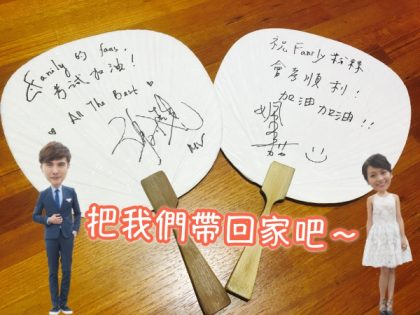 Family 的 fans,
考試加油!
All The Best
祝 Family 粉絲
會考順利!
加油加油!!
把我們帶回家吧~